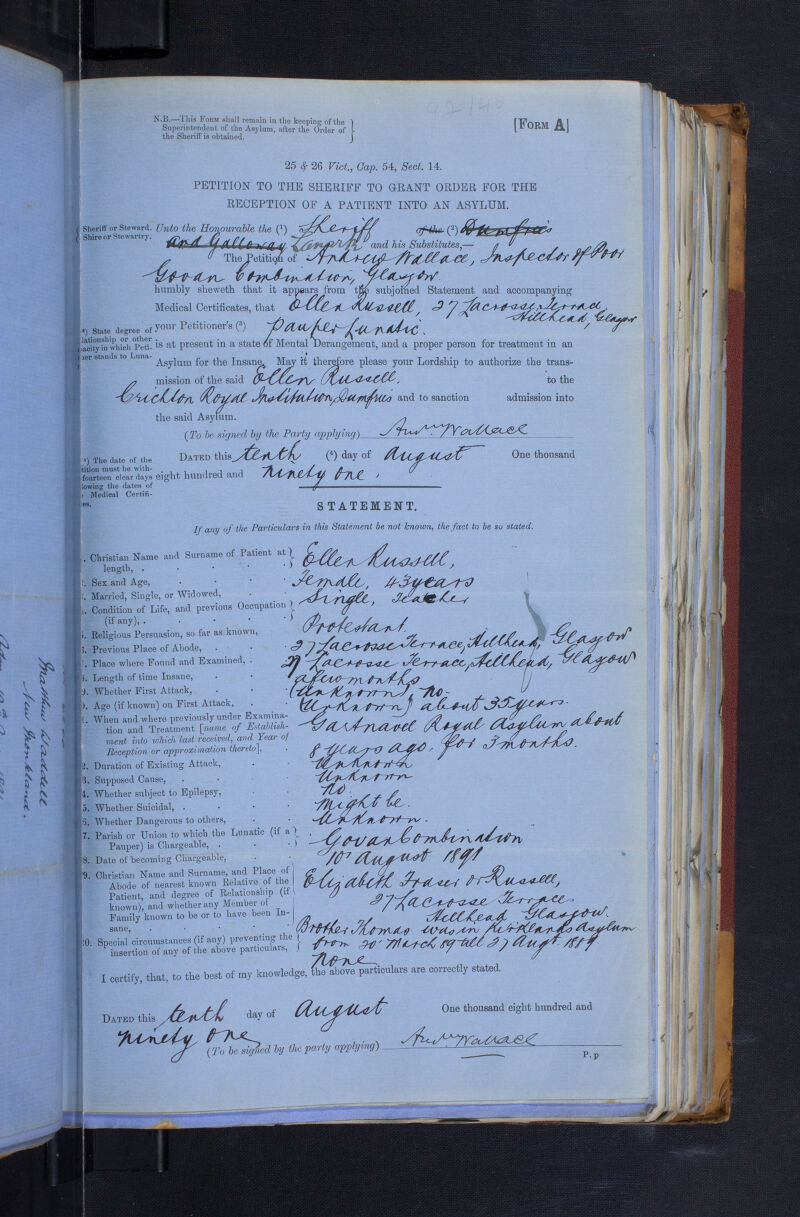 N.B.—This Form shall remain in the keeping of the
Superintendent of the Asylum, after the Order of
the Sheriff is obtained.
[Form A]
25 & 26 Vict., Cap. 54, Sect. 14.
PETITION TO THE SHERIFF TO GRANT ORDER FOR THE
RECEPTION OF A PATIENT INTO AN ASYLUM.
Sheriff or Steward.
Shire or Stewartry.
Unto the Honourable the (¹) Sheriff of the (²) Dumfries
and Galloway Lanark and his Substitutes,—
The Petition of Andrew Wallace, Inspector of Poor
Govan Combination, Glasgow
humbly sheweth that it appears from the subjoined Statement and accompanying
Medical Certificates, that Ellen Russell, 27 Lacrosse Terrace,
Hillhead, Glasgow
³) State degree of
lationship or other
pacity in which Peti-
ner stands to Luna-
your Petitioner's (³) Pauper Lunatic.
is at present in a state of Mental Derangement, and a proper person for treatment in an
Asylum for the Insane. May it therefore please your Lordship to authorize the trans-
mission of the said Ellen Russell. to the
Crichton Royal Institution, Dumfries and to sanction admission into
the said Asylum.
(To be signed by the Party applying) Andw. Wallace
⁴) The date of the
tition must be with-
fourteen clear days
lowing the dates of
Medical Certifi-
es.
Dated this tenth (⁴) day of August One thousand
eight hundred and ninety one.
STATEMENT.
If any of the Particulars in this Statement be not known, the fact to be so stated.
. Christian Name and Surname of Patient at length, . Ellen Russell,
2. Sex and Age, Female, 43 years
. Married, Single, or Widowed, Single, Teacher
. Condition of Life, and previous Occupation (if any), .
. Religious Persuasion, so far as known, Protestant.
. Previous Place of Abode, 27 Lacrosse Terrace, Hillhead, Glasgow
. Place where Found and Examined, 27 Lacrosse Terrace, Hillhead, Glasgow
8. Length of time Insane, a few months
9. Whether First Attack, (Unknown) no.
). Age (if known) on First Attack, (Unknown) about 35 years.
1. When and where previously under Examina-
tion and Treatment [name of Establish-
ment into which last received, and Year of
Reception or approximation thereto].
Gartnavel Royal Asylum about
8 years ago, for 3 months.
2. Duration of Existing Attack, Unknown
3. Supposed Cause, Unknown
4. Whether subject to Epilepsy, no
5. Whether Suicidal, Might be.
6. Whether Dangerous to others, Unknown.
7. Parish or Union to which the Lunatic (if a
Pauper) is Chargeable, Govan Combination
8. Date of becoming Chargeable, 10th August 1891
9. Christian Name and Surname, and Place of
Abode of nearest known Relative of the
Patient, and degree of Relationship (if
known), and whether any Member of
Family known to be or to have been In-
sane,
Elizabeth Fraser or Russell,
27 Lacrosse Terrace
Hillhead Glasgow.
Brother Thomas was in Kirklands Asylum
from 20th March 89 till 27 Augt 1889
20. Special circumstances (if any) preventing the
insertion of any of the above particulars,
None
I certify, that, to the best of my knowledge, the above particulars are correctly stated.
Dated this tenth day of August One thousand eight hundred and
ninety one
(To be signed by the party applying) Andw Wallace
P. p
Matthew Waddell
New Monkland.